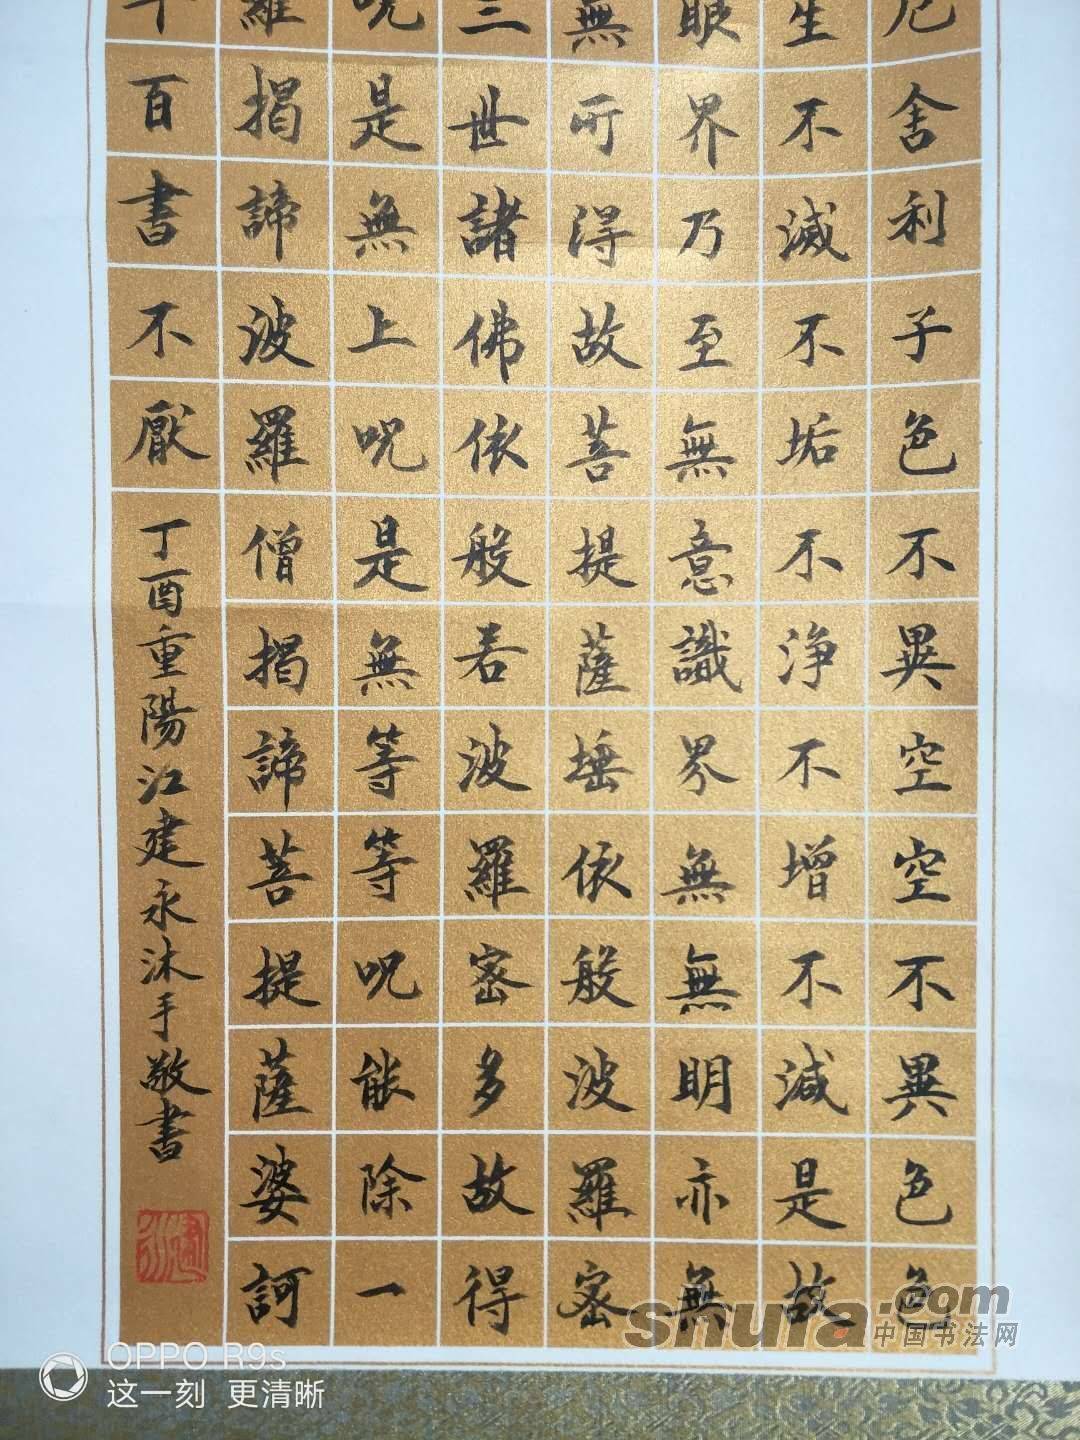 厄舍利子色不異空空不異色色
生不滅不垢不淨不增不減是故
眼界乃至無意識界無無明亦無
無所得故菩提薩埵依般波羅密
三世諸佛依般若波羅密多故得
呪是無上呪是無等等呪能除一
羅揭諦波羅僧揭諦菩提薩婆訶
百書不厭
丁酉重陽江建永沐手敬書
shufa.com
中国书法网
OPPO R9s
这一刻 更清晰